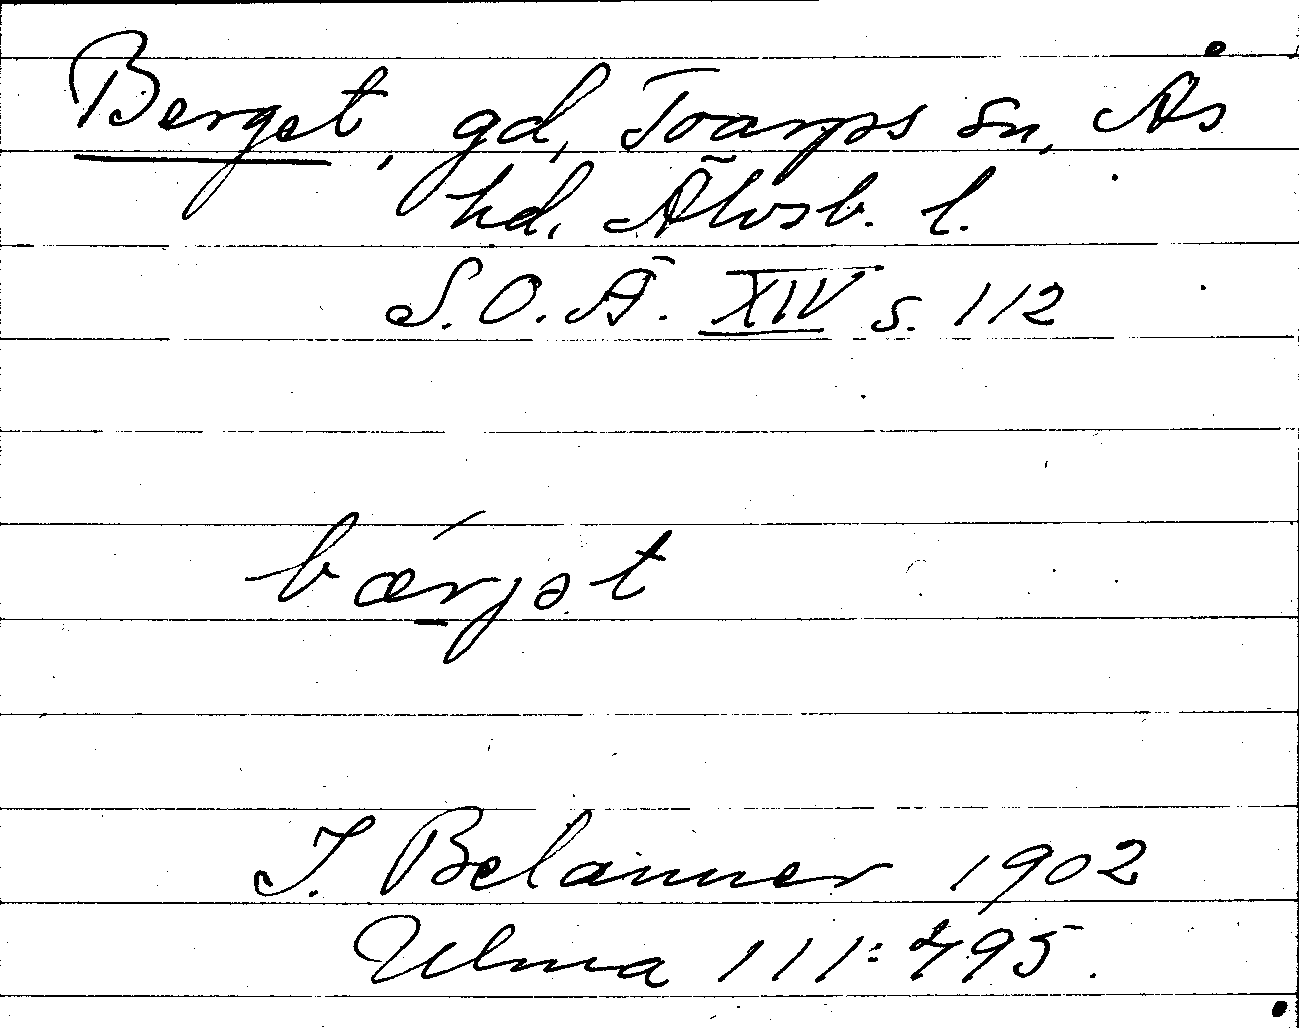 Berget, gd, Toarps sn, Ås
hd. Älvsb. l.
S.O.Ä. XIV s. 112
bærjət
I. Belanner 1902
Ulma 111:495.